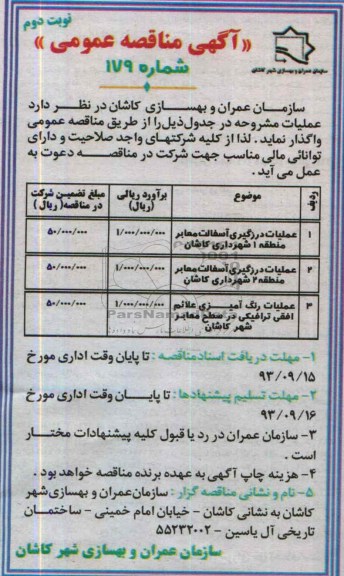 نوبت دوم
«آگهی مناقصه عمومی»
شماره ۱۷۹
سازمان عمران و بهسازی شهر کاشان
سازمـان عمران و بهسـازی کاشان در نظـر دارد
عملیات مشروحه در جدول ذیل را از طریق مناقصه عمومی
واگذار نماید . لذا از کلیه شرکتهـای واجد صلاحیت و دارای
توانائی مالی مناسب جهت شرکت در مناقصـه دعوت به
عمل می آید .
ردیف موضوع برآورد ریالی (ریال) مبلغ تضمیـن شرکت در مناقصه( ریال )
۱ عملیات درزگیری آسفالت معابر منطقه ۱ شهرداری کاشان ۱/۰۰۰/۰۰۰/۰۰۰ ۵۰/۰۰۰/۰۰۰
۲ عملیات درزگیری آسفالت معابر منطقه ۲ شهرداری کاشان ۱/۰۰۰/۰۰۰/۰۰۰ ۵۰/۰۰۰/۰۰۰
۳ عملیات رنگ آمیـزی علائم افقی ترافیکی در سطح معابـر شهر کاشان ۱/۰۰۰/۰۰۰/۰۰۰ ۵۰/۰۰۰/۰۰۰
۱- مهلت دریافت اسناد مناقصه : تا پایان وقت اداری مورخ
۹۳/۰۹/۱۵
۲- مهلت تسلیم پیشنهادها : تا پایـــان وقت اداری مورخ
۹۳/۰۹/۱۶
۳- سازمان عمران در رد یا قبول کلیه پیشنهادات مختـار
است .
۴- هزینه چاپ آگهی به عهده برنده مناقصه خواهد بود .
۵- نام و نشانی مناقصه گزار : سازمان عمران و بهسازی شهر
کاشان به نشانی کاشان - خیابان امام خمینی - ساختمـان
تاریخی آل یاسین - ۵۵۲۳۲۰۰۲
سازمان عمران و بهسازی شهر کاشان